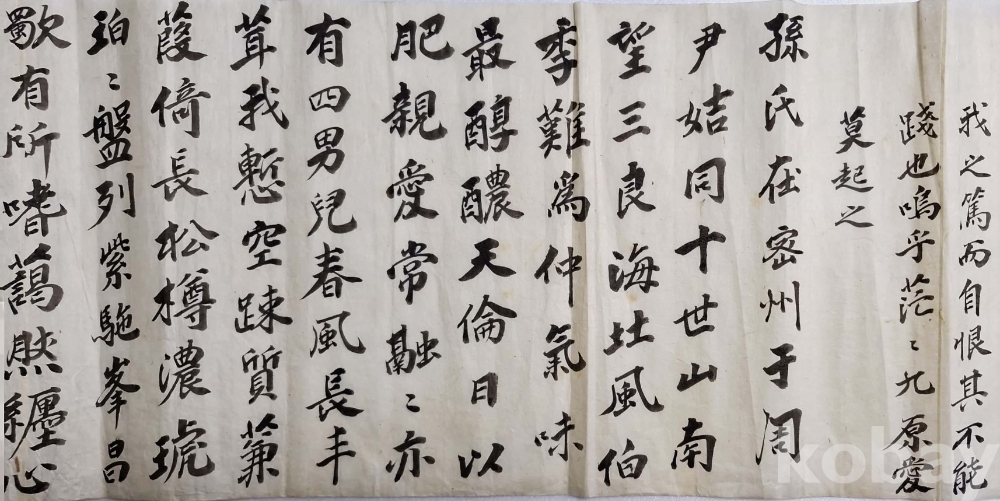 我之篤而自恨其不能
踐也嗚乎茫〻九原愛
莫起之
孫氏在密州于周
尹姞同十世山南
望三良海壯風伯
季難爲仲氣味
最醇醲天倫日以
肥親愛常融〻亦
有四男兒春風長丰
茸我慙空踈質蒹
葭倚長松樽濃琥
珀〻盤列紫駞峯昌
歜有所嗜藹然纏心
kobay